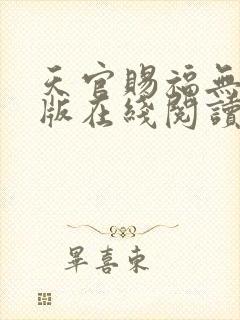 天官賜福無
版在綫閱讀
畢喜東